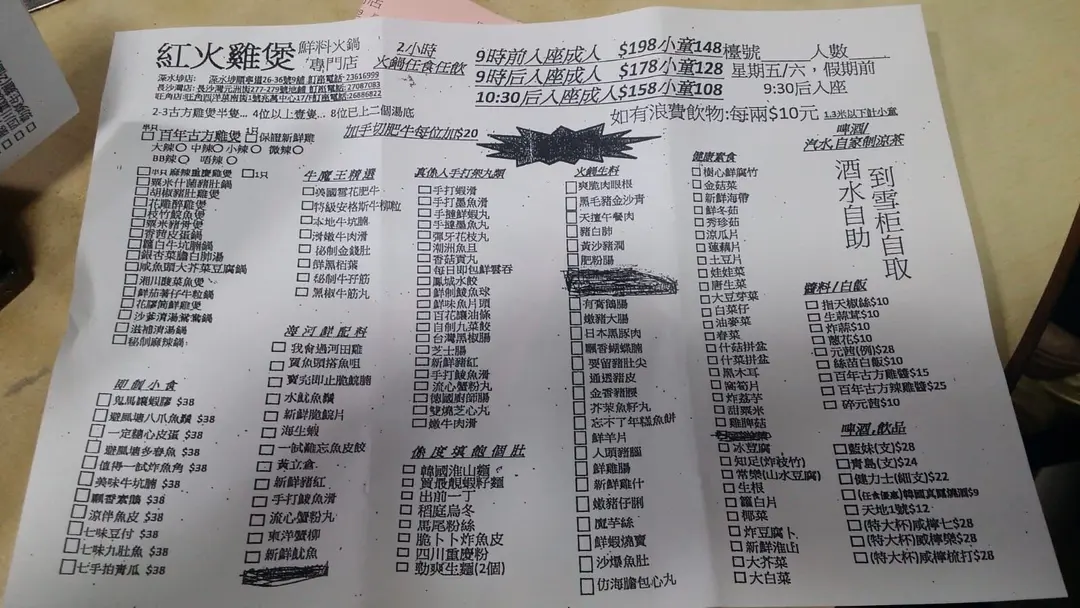 紅火雞煲 鮮料火鍋專門店
2小時
火鍋任食任飲
9時前入座成人 $198小童148
9時后入座成人 $178小童128
10:30后入座成人$158小童108
檯號 人數
星期五/六，假期前
9:30后入座
深水埗店:
長沙灣店: 長沙灣元洲街277-279號地鋪 訂座電話-27087083
2-3古方雞煲半隻... 4位以上壹隻... 8位已上二個湯底
加手切肥牛每位加$20
如有浪費飲物:每兩$10元 1.3米以下計小童
百年古方雞煲 保證新鮮雞
大辣 中辣 小辣 微辣
BB辣 唔辣
半只 麻辣重慶雞煲 1只
粟米什菌豬肚鍋
胡椒豬肚雞煲
花雕醉雞煲
枝竹鯇魚煲
粟米豬骨煲
香茜皮蛋鍋
蘿白牛坑腩鍋
銀杏菜膽白肺湯
咸魚頭大芥菜豆腐鍋
湘川酸菜魚煲
鮮茄薯仔牛粒鍋
花膠菌鮮雞煲
沙爹清湯鴛鴦鍋
滋補清湯鍋
秘制麻辣鍋
即創小食
鬼馬釀蝦膠 $38
避風塘八爪魚鬚 $38
一定糖心皮蛋 $38
避風塘多春魚 $38
值得一試炸魚角 $38
美味牛坑腩 $38
飄香素鵝 $38
涼伴魚皮 $38
七味豆付 $38
七味九肚魚 $38
七手拍青瓜 $38
牛魔王精選
美國雪花肥牛
特級安格斯牛柳粒
本地牛坑腩
滑嫩牛肉滑
秘制金錢肚
鮮黑栢葉
秘制牛孖筋
黑椒牛筋丸
海河鮮配料
我食過河田雞
賣魚頭搭魚咀
賣完即止脆鯇腩
水魷魚鬚
新鮮脆鯇片
海生蝦
一試難忘魚皮餃
黃立倉
新鮮豬紅
手打鯪魚滑
流心蟹粉丸
東洋蟹柳
新鮮魷魚
真係人手打架丸類
手打蝦滑
手打墨魚滑
手撻鮮蝦丸
手撻墨魚丸
彈牙花枝丸
潮洲魚旦
香菇貢丸
每日即包鮮雲吞
鳳城水餃
鮮制鯪魚球
鮮味魚片頭
百花讓油條
自制九菜餃
台灣黑椒腸
芝士腸
新鮮豬紅
手打鯪魚滑
流心蟹粉丸
德國廚師腸
雙燒芝心丸
嫩牛肉滑
係度填飽個肚
韓國淮山麵
質最靚蝦籽麵
出前一丁
稻庭烏冬
馬尾粉絲
脆卜卜炸魚皮
四川重慶粉
勁爽生麵(2個)
火鍋生料
爽脆肉眼根
黑毛豬金沙青
天擅午餐肉
豬白肺
黃沙豬潤
肥粉腸
有膏鵝腸
嫩豬大腸
日本黑豚肉
飄香蝴蝶腩
要留豬肚尖
通透豬皮
金香豬腰
芥茉魚籽丸
忘不了年糕魚餅
鮮羊片
人頭豬腦
鮮雞腸
新鮮雞什
嫩豬仔脷
魔芋絲
鮮蝦燒賣
沙爆魚肚
仿海膽包心丸
健康素食
樹心鮮腐竹
金菇菜
新鮮海帶
鮮冬菇
秀珍菇
涼瓜片
蓮藕片
土豆片
娃娃菜
唐生菜
大豆芽菜
白菜仔
油麥菜
春菜
什菇拼盆
什菜拼盆
黑木耳
窩筍片
炸荔芋
甜粟米
雞脾菇
冰豆腐
知足(炸枝竹)
常樂(山水豆腐)
生根
蘿白片
椰菜
炸豆腐卜
新鮮淮山
大芥菜
大白菜
啤酒/
汽水,自家制涼茶
酒水自助
到雪柜自取
醬料/白飯
指天椒絲$10
生蒜茸$10
炸蒜$10
蔥花$10
元茜(例)$28
絲苗白飯$10
百年古方雞醬$15
百年古方辣雞醬$25
碎元茜$10
啤酒,飲品
藍妹(支)$28
青島(支)$24
健力士(細支)$22
(任食優惠)韓國真露燒酒$9
天地1號$12
(特大杯)咸檸七$28
(特大杯)咸檸樂$28
(特大杯)咸檸梳打$28